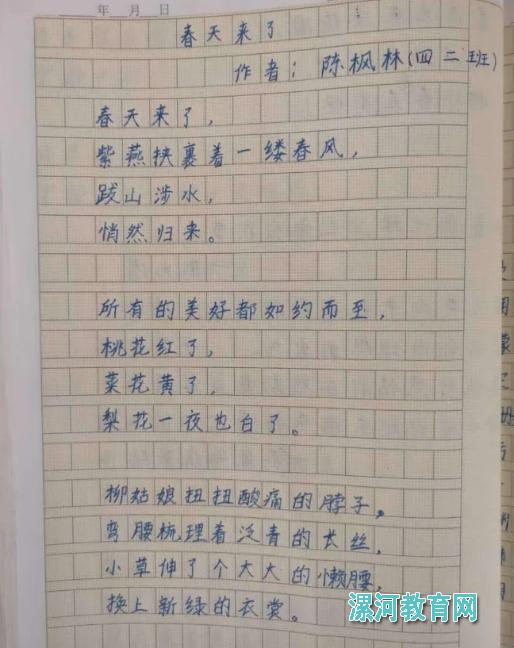 年 月 日
春天来了
作者：陈枫林(四二班)
春天来了，
紫燕挟裹着一缕春风，
跋山涉水，
悄然归来。
所有的美好都如约而至，
桃花红了，
菜花黄了，
梨花一夜也白了。
柳姑娘扭扭酸痛的脖子，
弯腰梳理着泛青的长丝，
小草伸了个大大的懒腰，
换上新绿的衣裳。
漯河教育网